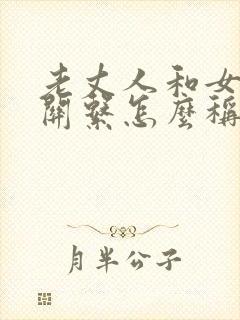 老丈人和女
關繫怎麼稱
月半公子